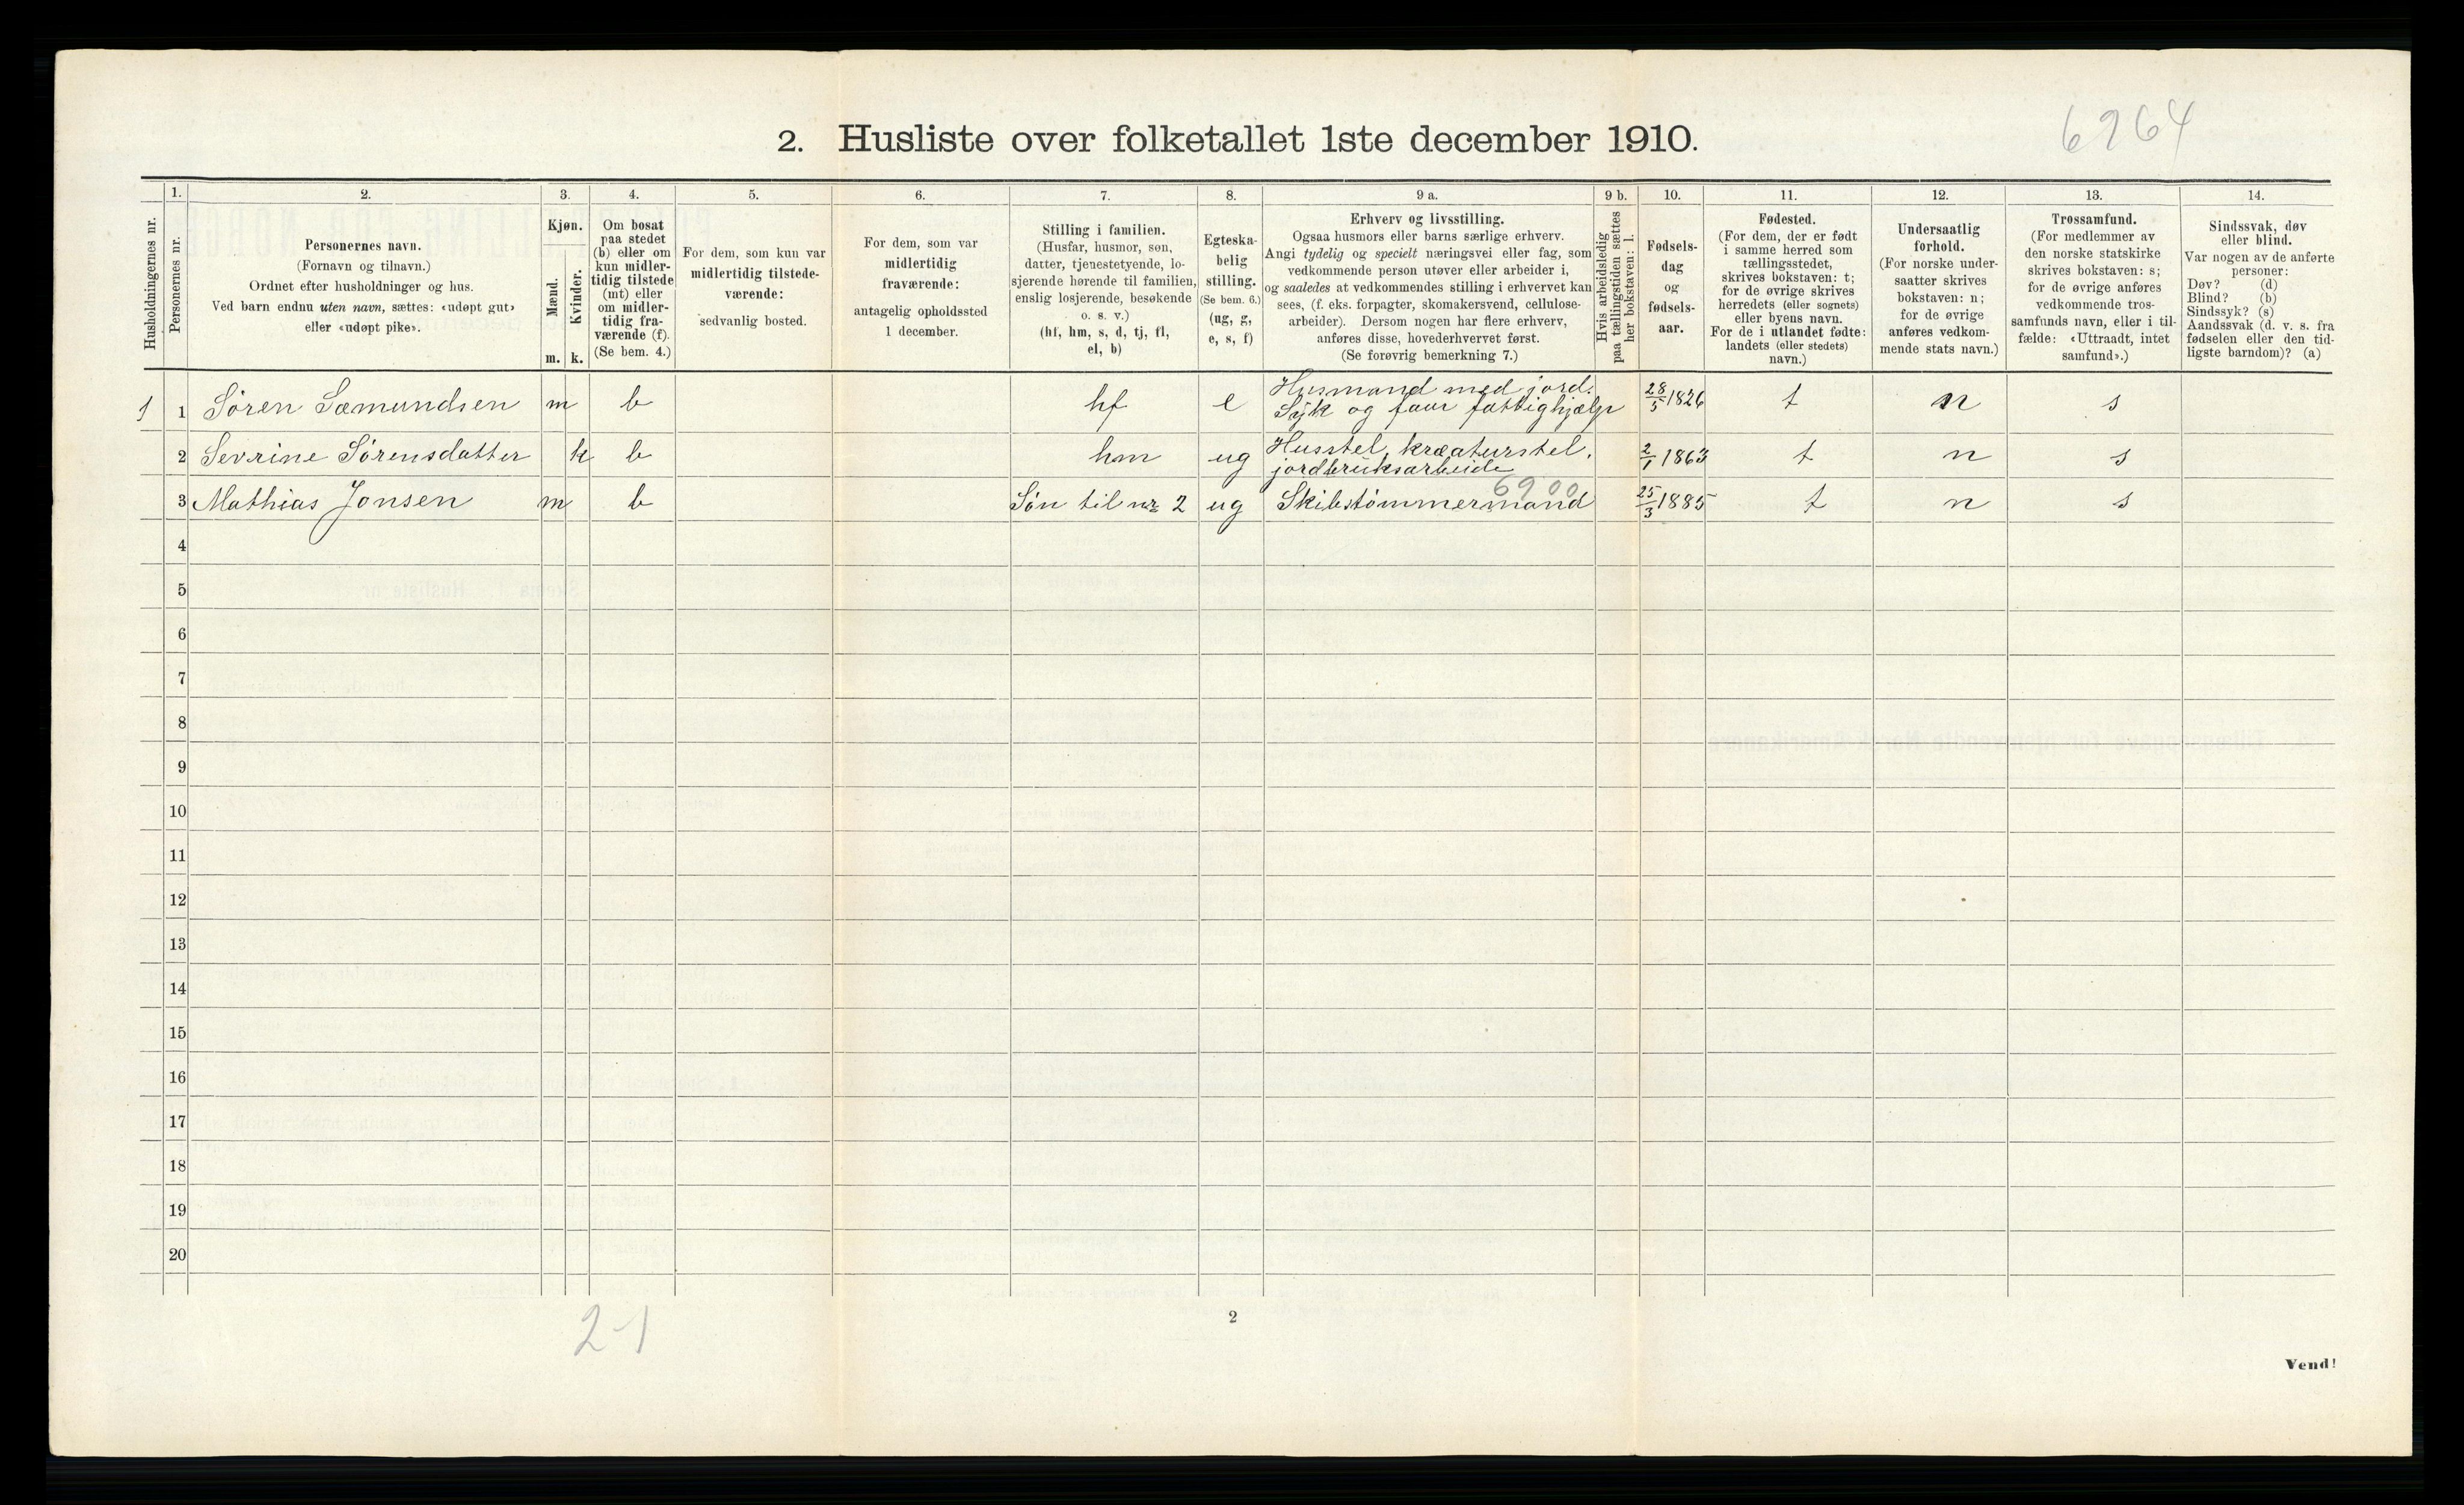 6964
2. Husliste over folketallet 1ste december 1910.
Husholdningernes nr.
1.
Personernes nr.
2.
Personernes navn.
(Fornavn og tilnavn.)
Ordnet efter husholdninger og hus.
Ved barn endnu uten navn, sættes: «udøpt gut»
eller «udøpt pike».
3.
Kjøn.
Mænd.
Kvinder.
m. k.
4.
Om bosat
paa stedet
(b) eller om
kun midler-
tidig tilstede
(mt) eller
om midler-
tidig fra-
værende (f).
(Se bem. 4.)
5.
For dem, som kun var
midlertidig tilstede-
værende:
sedvanlig bosted.
6.
For dem, som var
midlertidig
fraværende:
antagelig opholdssted
1 december.
7.
Stilling i familien.
(Husfar, husmor, søn,
datter, tjenestetyende, lo-
sjerende hørende til familien,
enslig losjerende, besøkende
o. s. v.)
(hf, hm, s, d, tj, fl,
el, b)
8.
Egteska-
belig
stilling.
(Se bem. 6.)
(ug, g,
e, s, f)
9 a.
Erhverv og livsstilling.
Ogsaa husmors eller barns særlige erhverv.
Angi tydelig og specielt næringsvei eller fag, som
vedkommende person utøver eller arbeider i,
og saaledes at vedkommendes stilling i erhvervet kan
sees, (f. eks. forpagter, skomakersvend, cellulose-
arbeider). Dersom nogen har flere erhverv,
anføres disse, hovederhvervet først.
(Se forøvrig bemerkning 7.)
9 b.
Hvis arbeidsledig
paa tællingstiden sættes
her bokstaven: l.
10.
Fødsels-
dag
og
fødsels-
aar.
11.
Fødested.
(For dem, der er født
i samme herred som
tællingsstedet,
skrives bokstaven: t;
for de øvrige skrives
herredets (eller sognets)
eller byens navn.
For de i utlandet fødte:
landets (eller stedets)
navn.)
12.
Undersaatlig
forhold.
(For norske under-
saatter skrives
bokstaven: n;
for de øvrige
anføres vedkom-
mende stats navn.)
13.
Trossamfund.
(For medlemmer av
den norske statskirke
skrives bokstaven: s;
for de øvrige anføres
vedkommende tros-
samfunds navn, eller i til-
fælde: «Uttraadt, intet
samfund».)
14.
Sindssvak, døv
eller blind.
Var nogen av de anførte
personer:
Døv? (d)
Blind? (b)
Sindssyk? (s)
Aandssvak (d. v. s. fra
fødselen eller den tid-
ligste barndom)? (a)
1 1 Sören Sæmundsen m b hf e Husmand med jord.
Syk og faar fattighjælp 28/5 1826 t n s
2 Sevrine Sörensdatter k b hm ug Husstel, kræaturstel,
jordbruksarbeide 2/1 1863 t n s
6900
3 Mathias Jonsen m b Sön til nr 2 ug Skibstömmermand 25/3 1885 t n s
4
5
6
7
8
9
10
11
12
13
14
15
16
17
18
19
20
2-1
2
Vend!